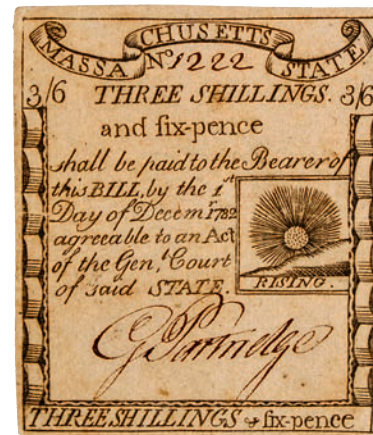 MASSACHUSETTS STATE
No 1222
3/6 THREE SHILLINGS. 3/6
and ſix-pence
shall be paid to the Bearer of
this BILL, by the 1st
Day of Decemr. 1782
agreeable to an Act
of the Gen,t Court
of said STATE.
RISING.
G Partridge
THREE SHILLINGS & ſix-pence